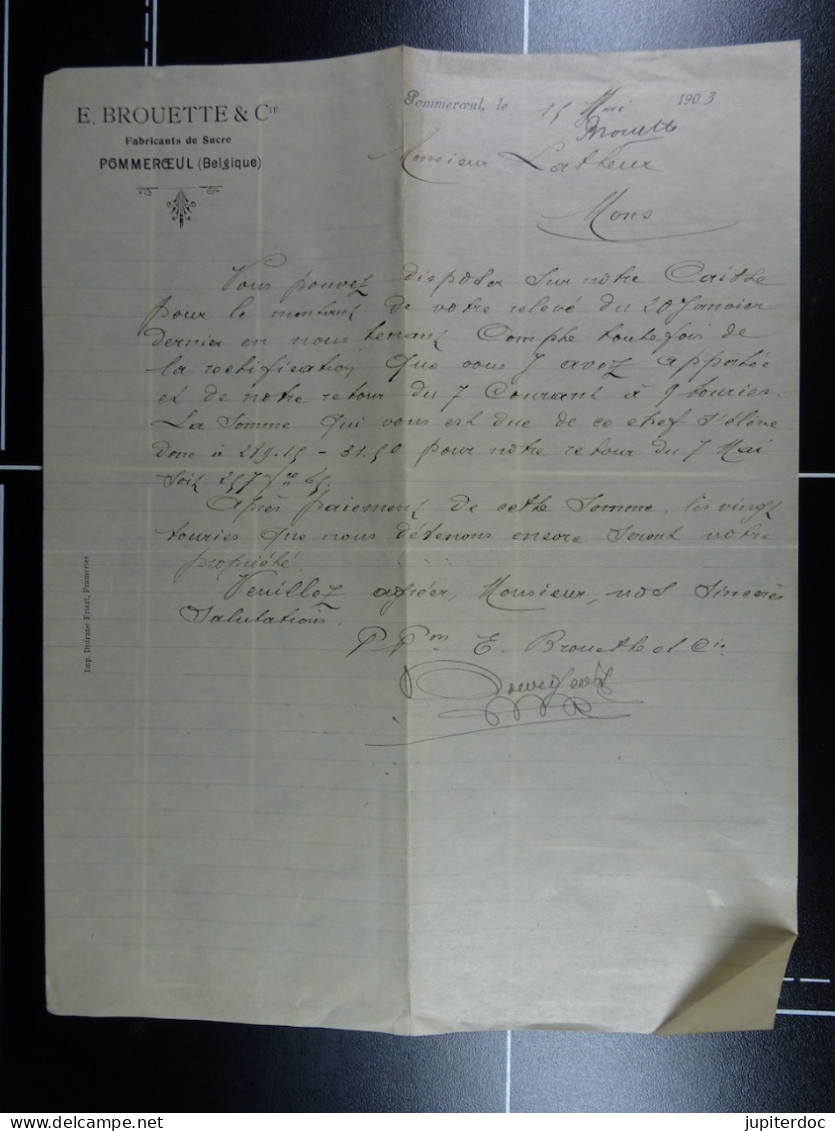 E. BROUETTE & CIE
Fabricants de Sucre
POMMERŒUL (Belgique)
Pommerœul, le 15 Mai 1903
Brouette
Monsieur Latteur
Mons
Vous pouvez disposer sur notre Caisse
pour le montant de votre relevé du 20 Janvier
dernier en nous tenant Compte toutefois de
la rectification que vous y avez apportée
et de notre retour du 7 Courant à 9 touries.
La somme qui vous est due de ce chef s'élève
donc à 289.15 - 31.50 pour notre retour du 7 Mai
soit 257 frs 65.
Après paiement de cette somme, les vingt
touries que nous détenons encore seront votre
propriété.
Veuillez agréer, Monsieur, nos sincères
Salutations.
P Pon E. Brouette et Cie
Imp. Dufrane-Friart, Frameries
jupiterdoc